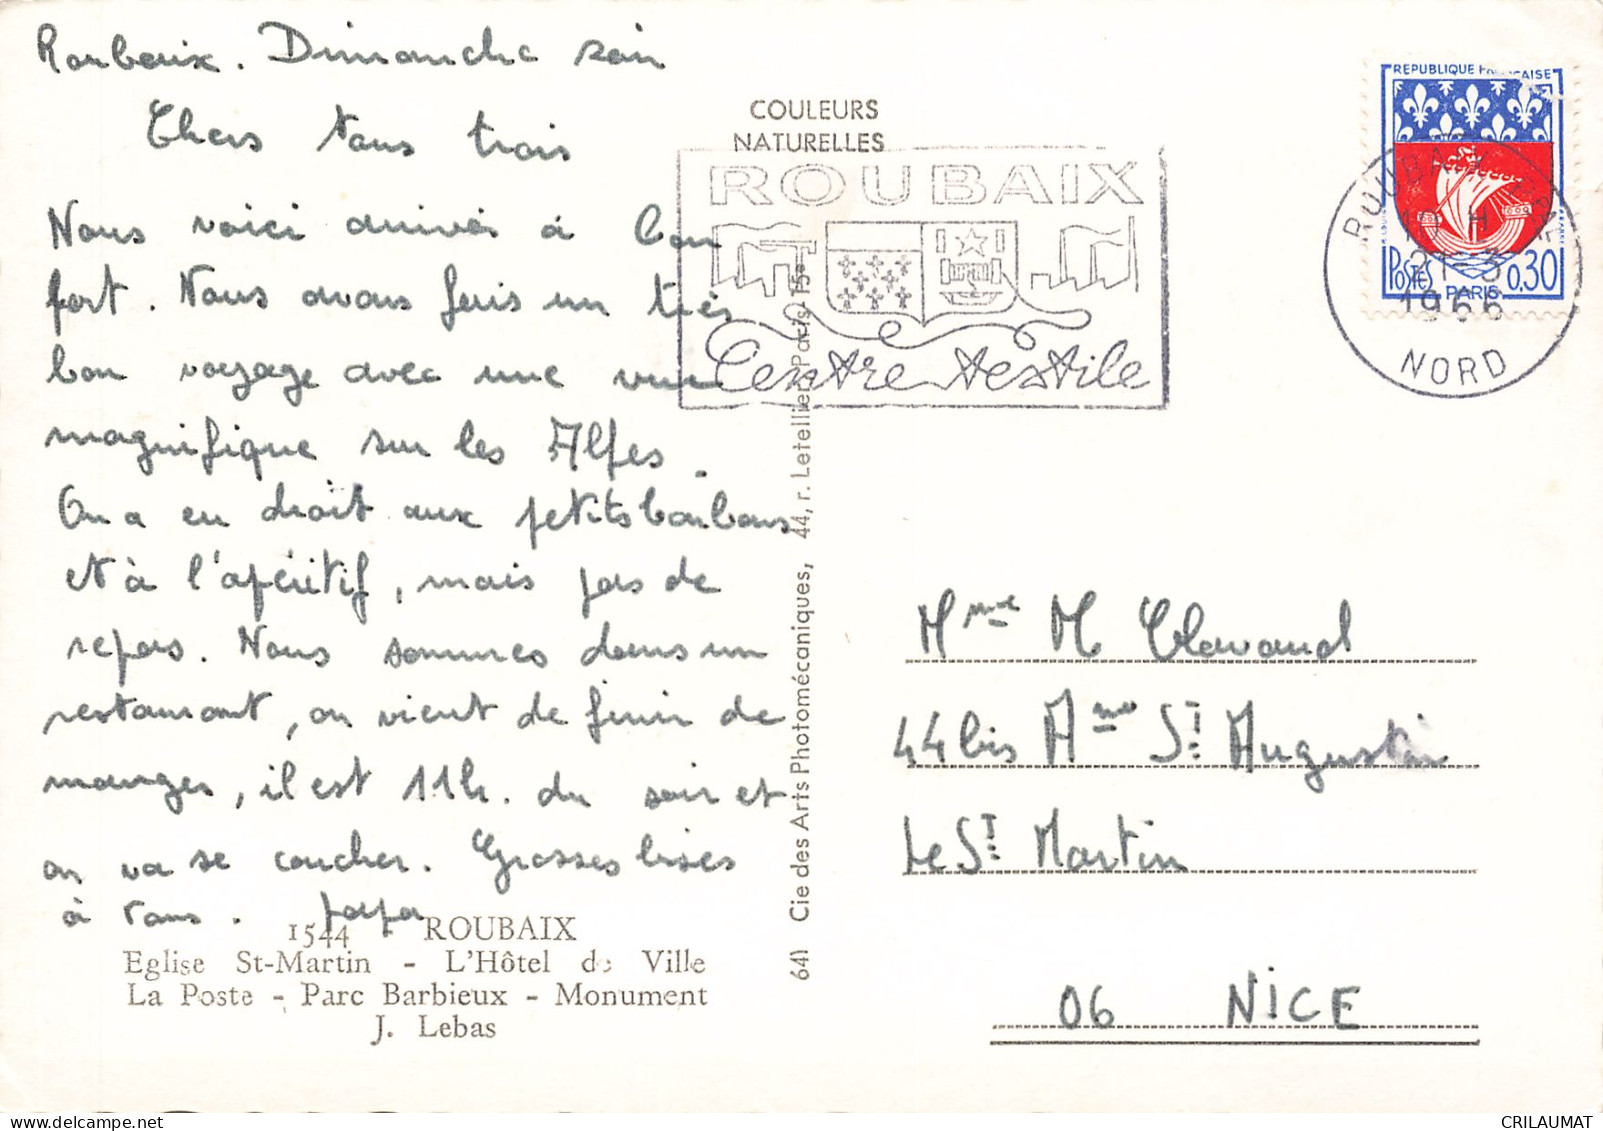 Roubaix. Dimanche soir
Chers Vous trois
Nous voici arrivés à bon
port. Nous avons fais un très
bon voyage avec une vue
magnifique sur les Alpes.
On a eu droit aux petits bonbons
et à l'apéritif, mais pas de
repas. Nous sommes dans un
restaurant, on vient de finir de
manger, il est 11h. du soir et
on va se coucher. Grosses bises
à vous. papa
1544 ROUBAIX
Eglise St-Martin - L'Hôtel de Ville
La Poste - Parc Barbieux - Monument
J. Lebas
641 Cie des Arts Photomécaniques, 44, r. Letellier Paris 15e
COULEURS
NATURELLES
ROUBAIX
Centre textile
REPUBLIQUE FRANÇAISE
POSTES PARIS 0,30
ROUBAIX
H
21-3
1966
NORD
Mme M Clavaud
44 bis Ame St Augustin
Le St Martin
06 NICE
CRILAUMAT